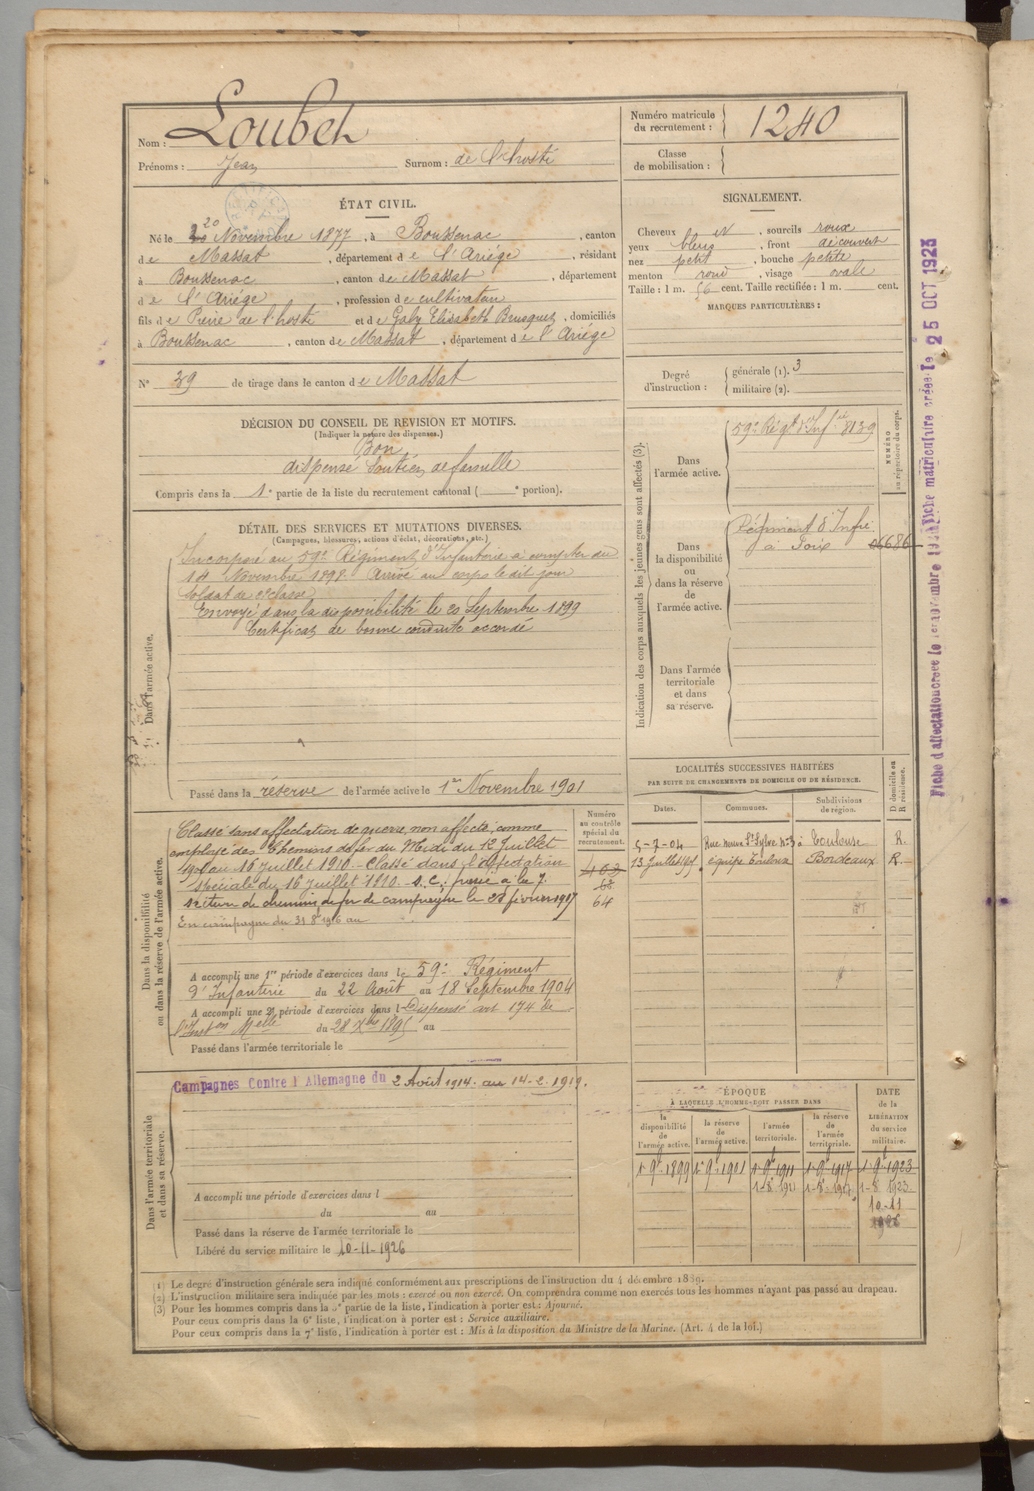 Nom : Loubet
Prénoms : Jean Surnom : de l'hosté
Numéro matricule du recrutement : 1240
Classe de mobilisation :
ÉTAT CIVIL.
Né le 20 Novembre 1877, à Boussenac, canton
de Massat, département de l'Ariége, résidant
à Boussenac, canton de Massat, département
de l'Ariége, profession de cultivateur
fils de Pierre de l'hosté et de Galy Elisabeth Brusquez, domiciliés
à Boussenac, canton de Massat, département de l'Ariége
N° 39 de tirage dans le canton de Massat
SIGNALEMENT.
Cheveux et, sourcils roux
yeux bleus, front découvert
nez petit, bouche petite
menton rond, visage ovale
Taille : 1 m. 56 cent. Taille rectifiée : 1 m. cent.
MARQUES PARTICULIÈRES :
Degré d'instruction : générale (1). 3
militaire (2).
DÉCISION DU CONSEIL DE REVISION ET MOTIFS.
(Indiquer la nature des dispenses.)
Bon
dispensé Soutien de famille
Compris dans la 1e partie de la liste du recrutement cantonal ( e portion).
DÉTAIL DES SERVICES ET MUTATIONS DIVERSES.
(Campagnes, blessures, actions d'éclat, décorations, etc.)
Dans l'armée active.
Incorporé au 59e Régiment d'Infanterie à compter du
14 Novembre 1898. Arrivé au corps le dit jour
Soldat de 2e classe
Envoyé dans la disponibilité le 20 Septembre 1899
Certificat de bonne conduite accordé
Passé dans la réserve de l'armée active le 1er Novembre 1901
Indication des corps auxquels les jeunes gens sont affectés (3).
Dans l'armée active.
59e Régt d'Infie 8139
NUMÉRO au répertoire du corps.
Dans la disponibilité ou dans la réserve de l'armée active.
Régiment d'Infie
à Foix 6686
Dans l'armée territoriale et dans sa réserve.
LOCALITÉS SUCCESSIVES HABITÉES
PAR SUITE DE CHANGEMENTS DE DOMICILE OU DE RÉSIDENCE.
Dates. Communes. Subdivisions de région. D domicile ou R résidence.
5-7-04 Rue neuve St Sylve n° 3 à Toulouse R.
13 Juillet équipe Toulouse Bordeaux R.
Dans la disponibilité ou dans la réserve de l'armée active.
Numéro au contrôle spécial du recrutement.
Classé sans affectation de guerre, non affecté, comme
employé des Chemins de fer du Midi du 12 Juillet
au 16 juillet 1910. - Classé dans l'affectation
spéciale du 16 juillet 1910. - S. C. : passé à la 7e
section de chemins de fer de campagne le 28 février 1917
En campagne du 31 8 1916 au
403
68
64
A accompli une 1re période d'exercices dans le 59e Régiment
d'Infanterie du 22 Août au 18 Septembre 1904
A accompli une 2e période d'exercices dans l Dispensé art 174 de
l'Inston Melle du 28 Xbre 1895 au
Passé dans l'armée territoriale le
Dans l'armée territoriale et dans sa réserve.
Campagnes Contre l'Allemagne du 2 Août 1914 au 14-2-1919.
A accompli une période d'exercices dans l
du au
Passé dans la réserve de l'armée territoriale le
Libéré du service militaire le 10-11-1926
ÉPOQUE
À LAQUELLE L'HOMME DOIT PASSER DANS
la disponibilité de l'armée active. la réserve de l'armée active. l'armée territoriale. la réserve de l'armée territoriale. DATE de la LIBÉRATION du service militaire.
1er 9bre 1899 1er 9bre 1901 1er 9bre 1911 1er 9bre 1917 1er 9bre 1923
1-8 1911 1-8 1917 1-8 1923
10-11
1926
Fiche d'affectation créée le 1er novembre Fiche matriculaire créée le 25 OCT 1923
(1) Le degré d'instruction générale sera indiqué conformément aux prescriptions de l'instruction du 4 décembre 1889.
(2) L'instruction militaire sera indiquée par les mots : exercé ou non exercé. On comprendra comme non exercés tous les hommes n'ayant pas passé au drapeau.
(3) Pour les hommes compris dans la 5e partie de la liste, l'indication à porter est : Ajourné.
Pour ceux compris dans la 6e liste, l'indication à porter est : Service auxiliaire.
Pour ceux compris dans la 7e liste, l'indication à porter est : Mis à la disposition du Ministre de la Marine. (Art. 4 de la loi.)